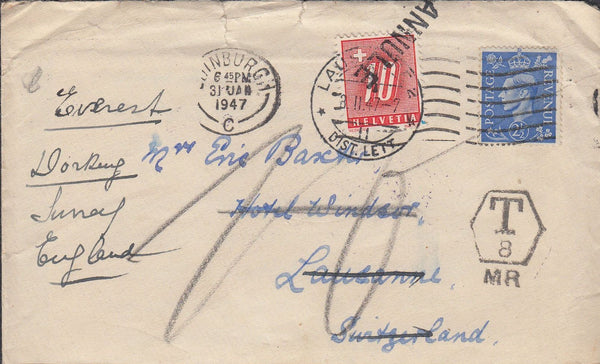 EDINBURGH
6 45 PM
31 JAN
1947
C
ANNUL
10
HELVETIA
LAU
II.47-2
DIST. LETT.
POSTAGE
REVENUE
2½
Everest
Dorking
Surrey
England
Mrs Eric Baxter,
Hotel Windsor,
Lausanne,
Switzerland.
T
8
MR